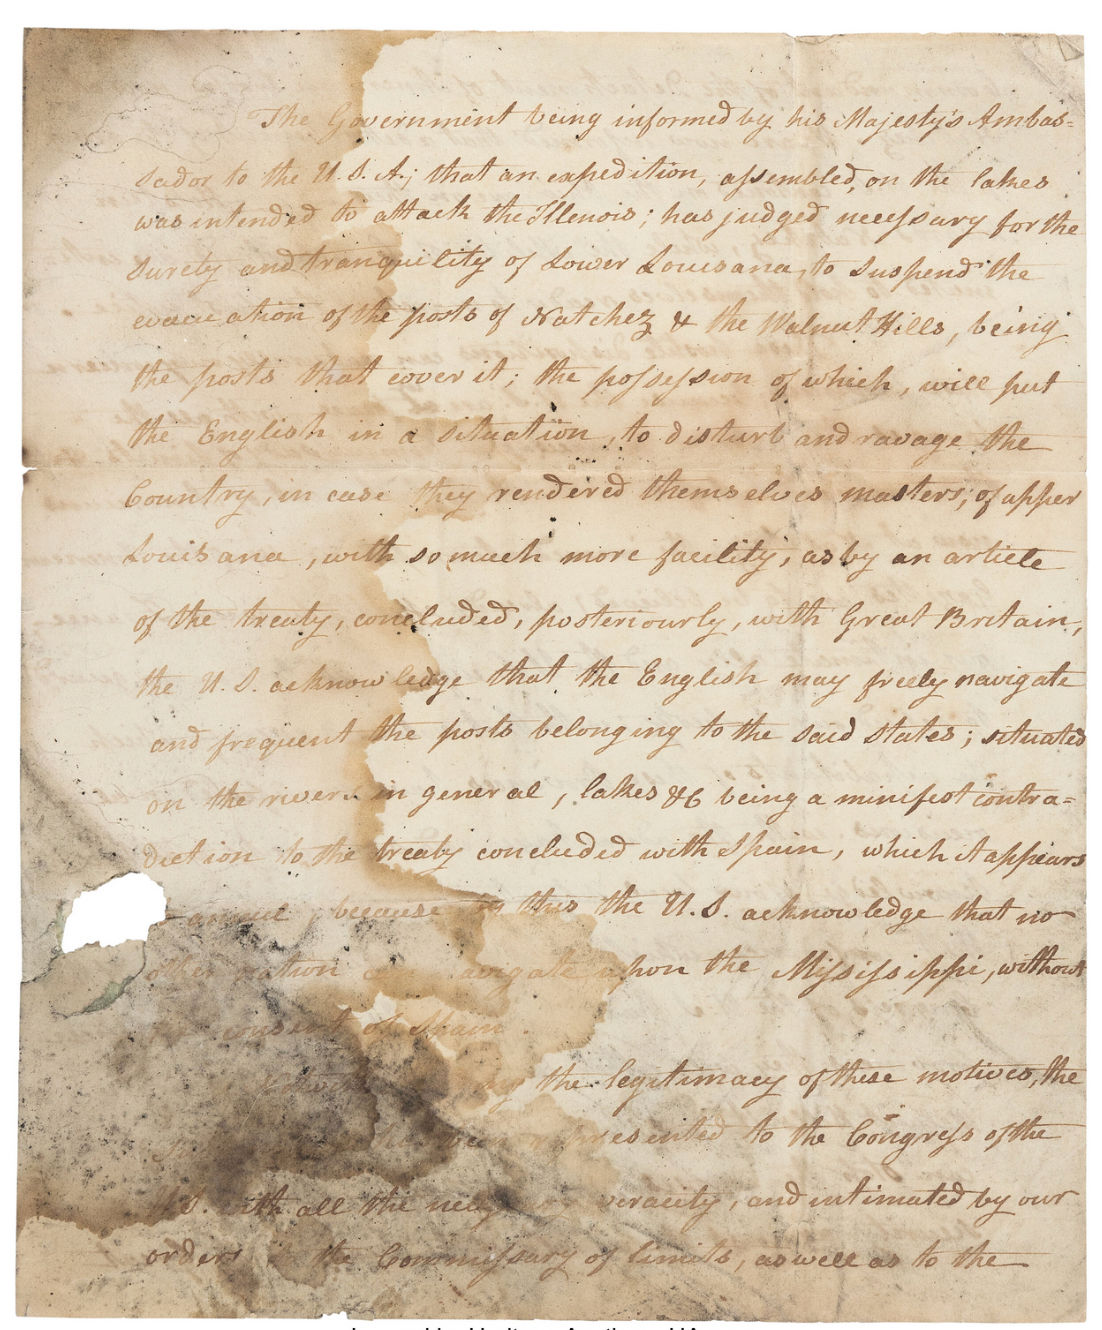 The Government being informed by his Majesty's Ambas=
sador to the U.S.A; that an expedition, assembled, on the lakes
was intended to attack the Illenois; has judged necessary for the
surety and tranquility of Lower Louisana, to suspend the
evacuation of the posts of Natchez & the Walnut Hills, being
the posts that cover it; the possession of which, will put
the English in a situation, to disturb and ravage the
Country, in case they rendered themselves masters, of upper
Louisana, with so much more facility, as by an article
of the treaty, concluded, posteriourly, with Great Britain,
the U.S. acknowledge that the English may freely navigate
and frequent the posts belonging to the said states; situated
on the rivers in general, lakes &c being a minifest contra=
diction to the treaty concluded with Spain, which it appears
because by this the U.S. acknowledge that no
other nation can navigate upon the Mississippi, without
consent of Spain.
the legitimacy of these motives, the
been represented to the Congress of the
U.S. with all the veracity, and intimated by our
orders to the Commissary of limits, as well as to the